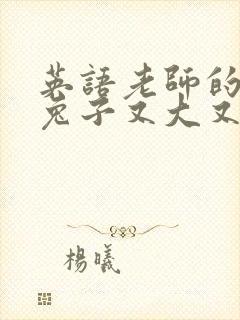 英語老師的
兔子又大又
楊曦